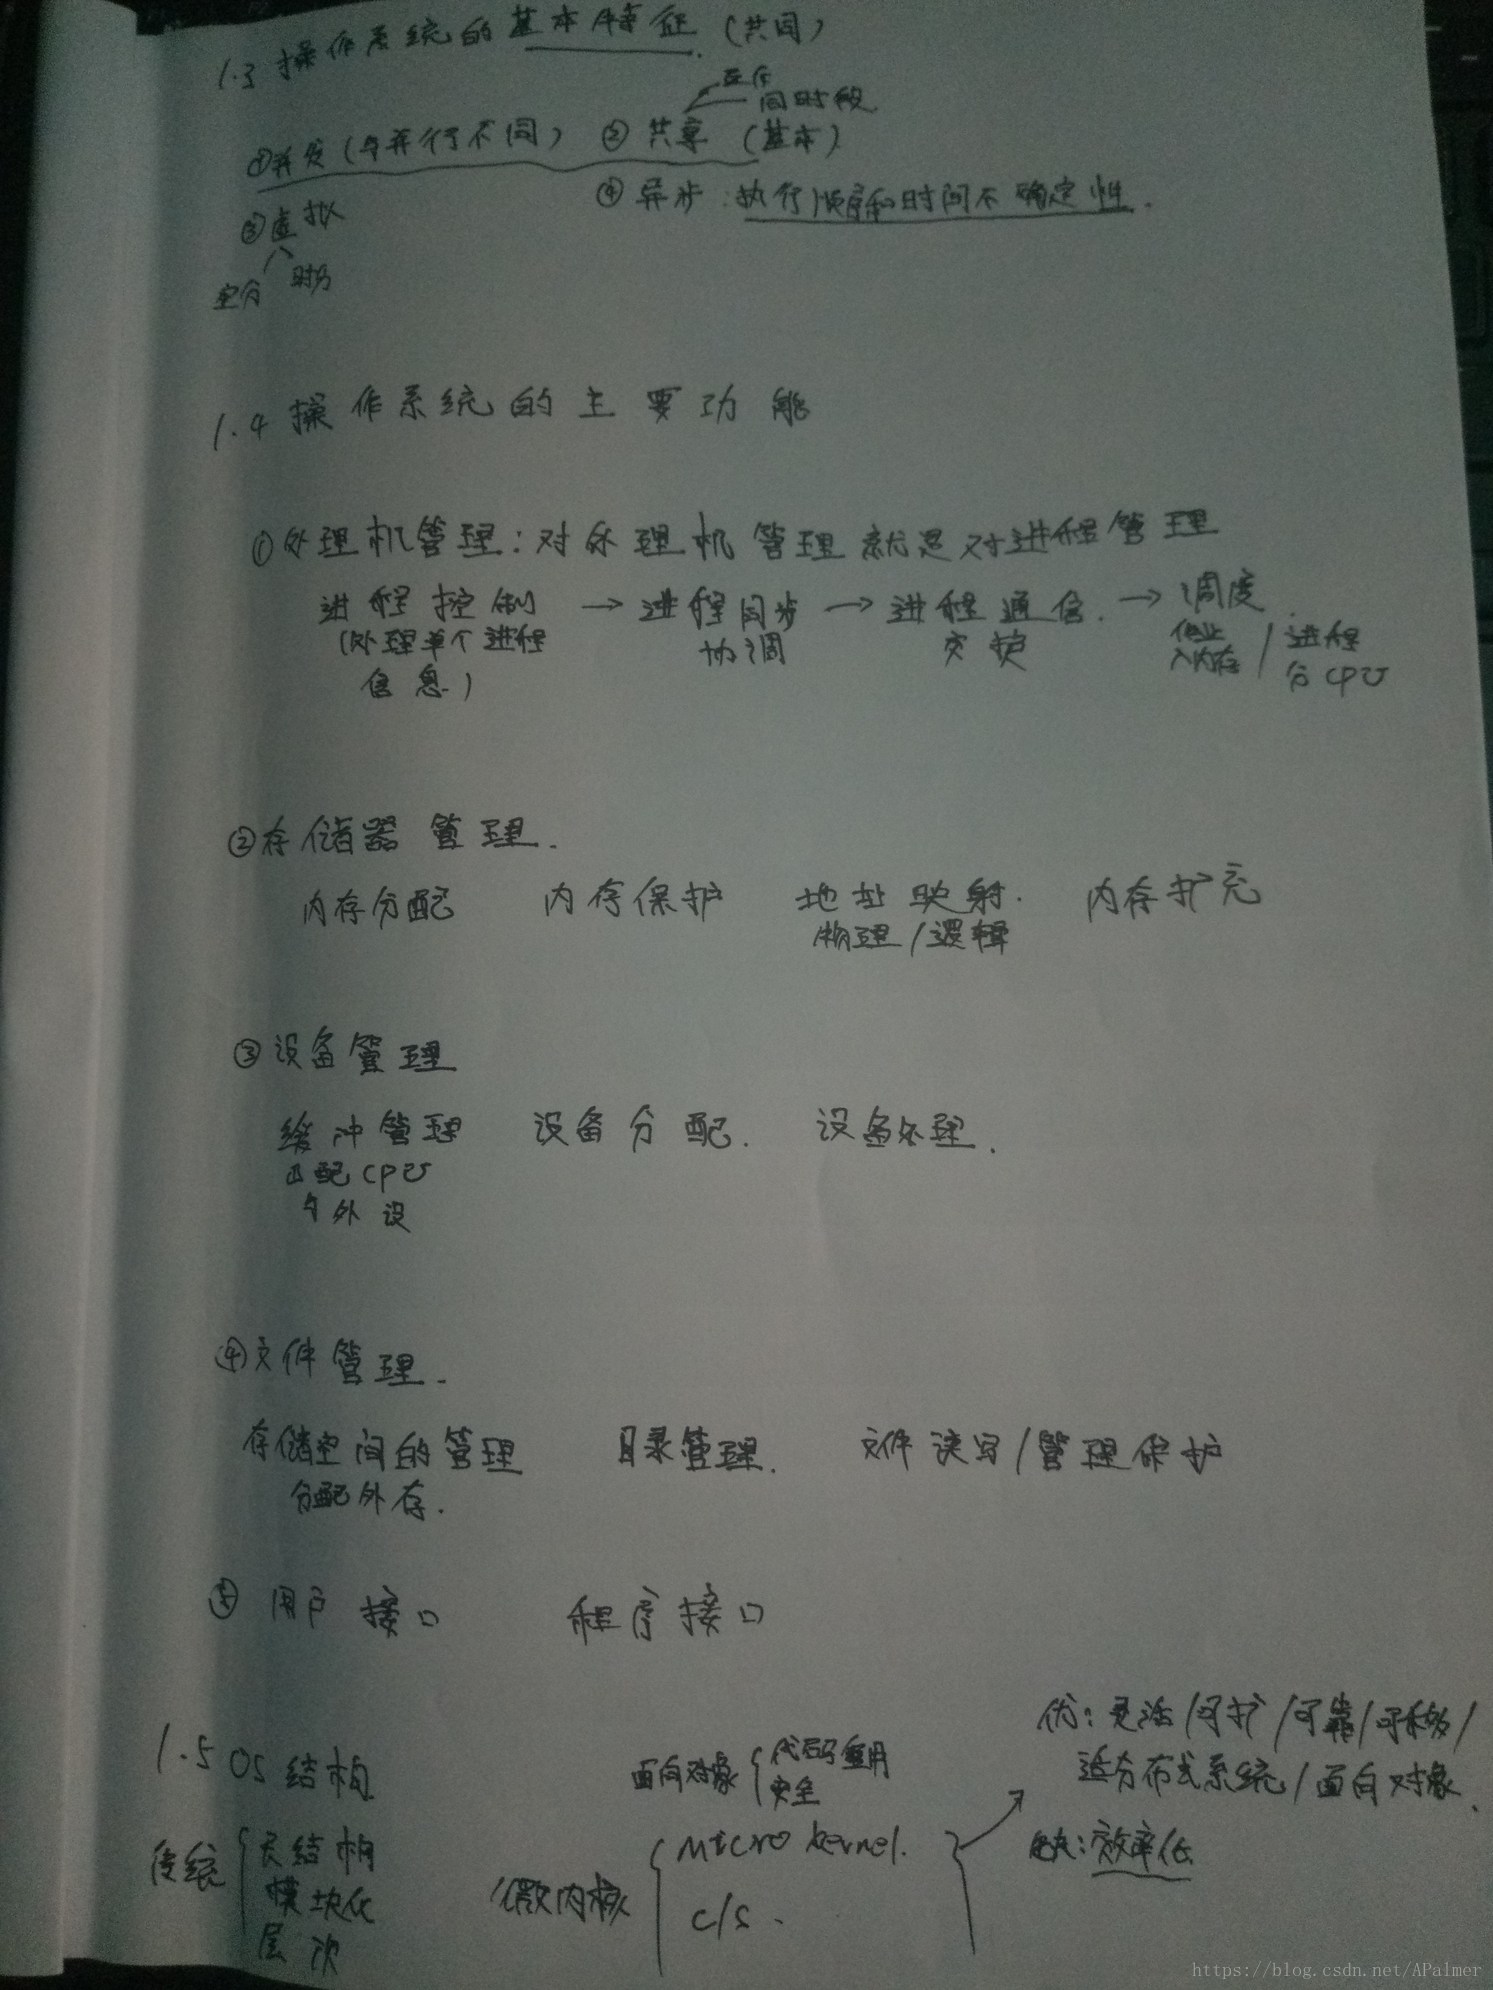 1.3 操作系统的基本特征 (共同)
互斥
同时段
①并发(与并行不同) ② 共享 (基本)
③虚拟 ④ 异步:执行顺序和时间不确定性.
空分 时分
1.4 操作系统的主要功能
①处理机管理:对处理机管理就是对进程管理
进程控制 → 进程同步 → 进程通信. → 调度
(处理单个进程 协调 交换 作业 / 进程
信息) 入内存 分CPU
②存储器管理.
内存分配 内存保护 地址映射. 内存扩充
物理/逻辑
③设备管理
缓冲管理 设备分配. 设备处理.
匹配CPU
与外设
④文件管理.
存储空间的管理 目录管理. 文件读写/管理保护
分配外存.
⑤ 用户接口 程序接口
1.5 OS结构
面向对象 { 代码重用
安全
优: 灵活/可扩/可靠/可移/
适分布式系统/面向对象.
缺:效率低
传统 { 无结构
模块化
层次
微内核 { Micro kernel.
C/S.
https://blog.csdn.net/APalmer